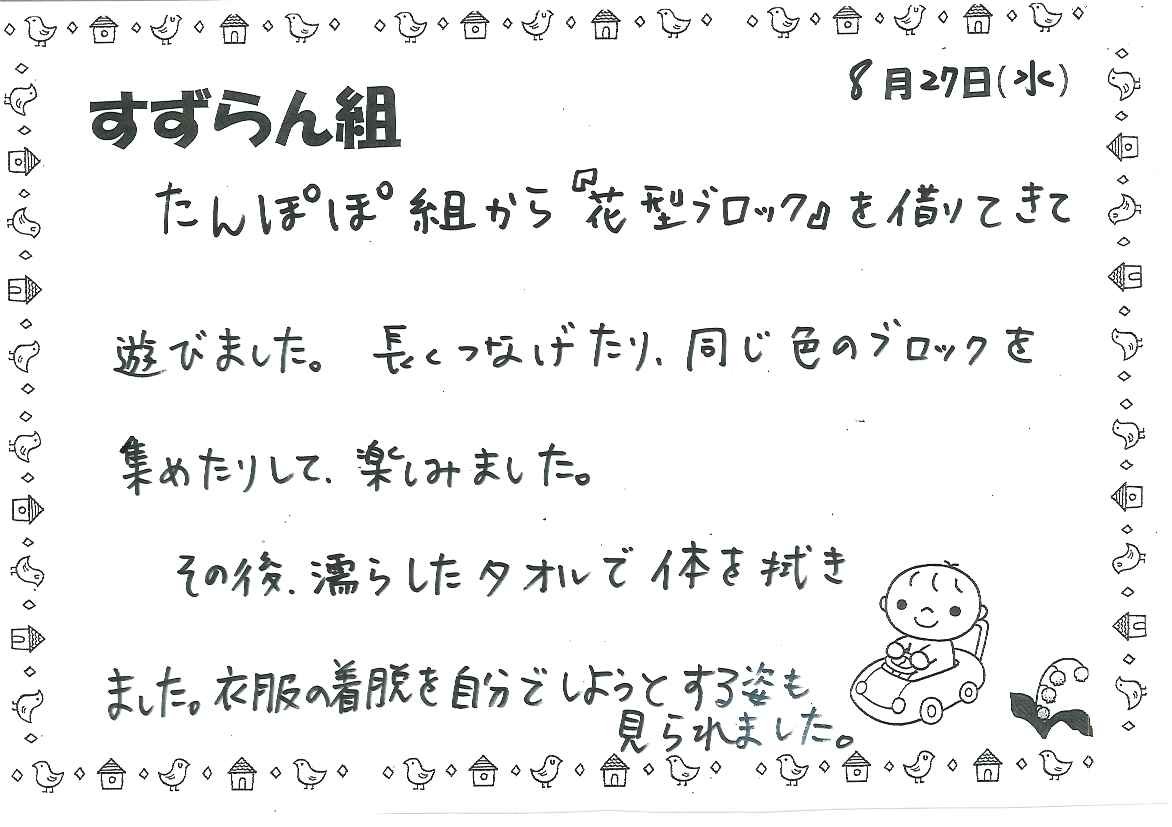 8月27日(水)
すずらん組
たんぽぽ組から『花型ブロック』を借りてきて
遊びました。長くつなげたり、同じ色のブロックを
集めたりして、楽しみました。
その後、濡らしたタオルで体を拭き
ました。衣服の着脱を自分でしようとする姿も
見られました。